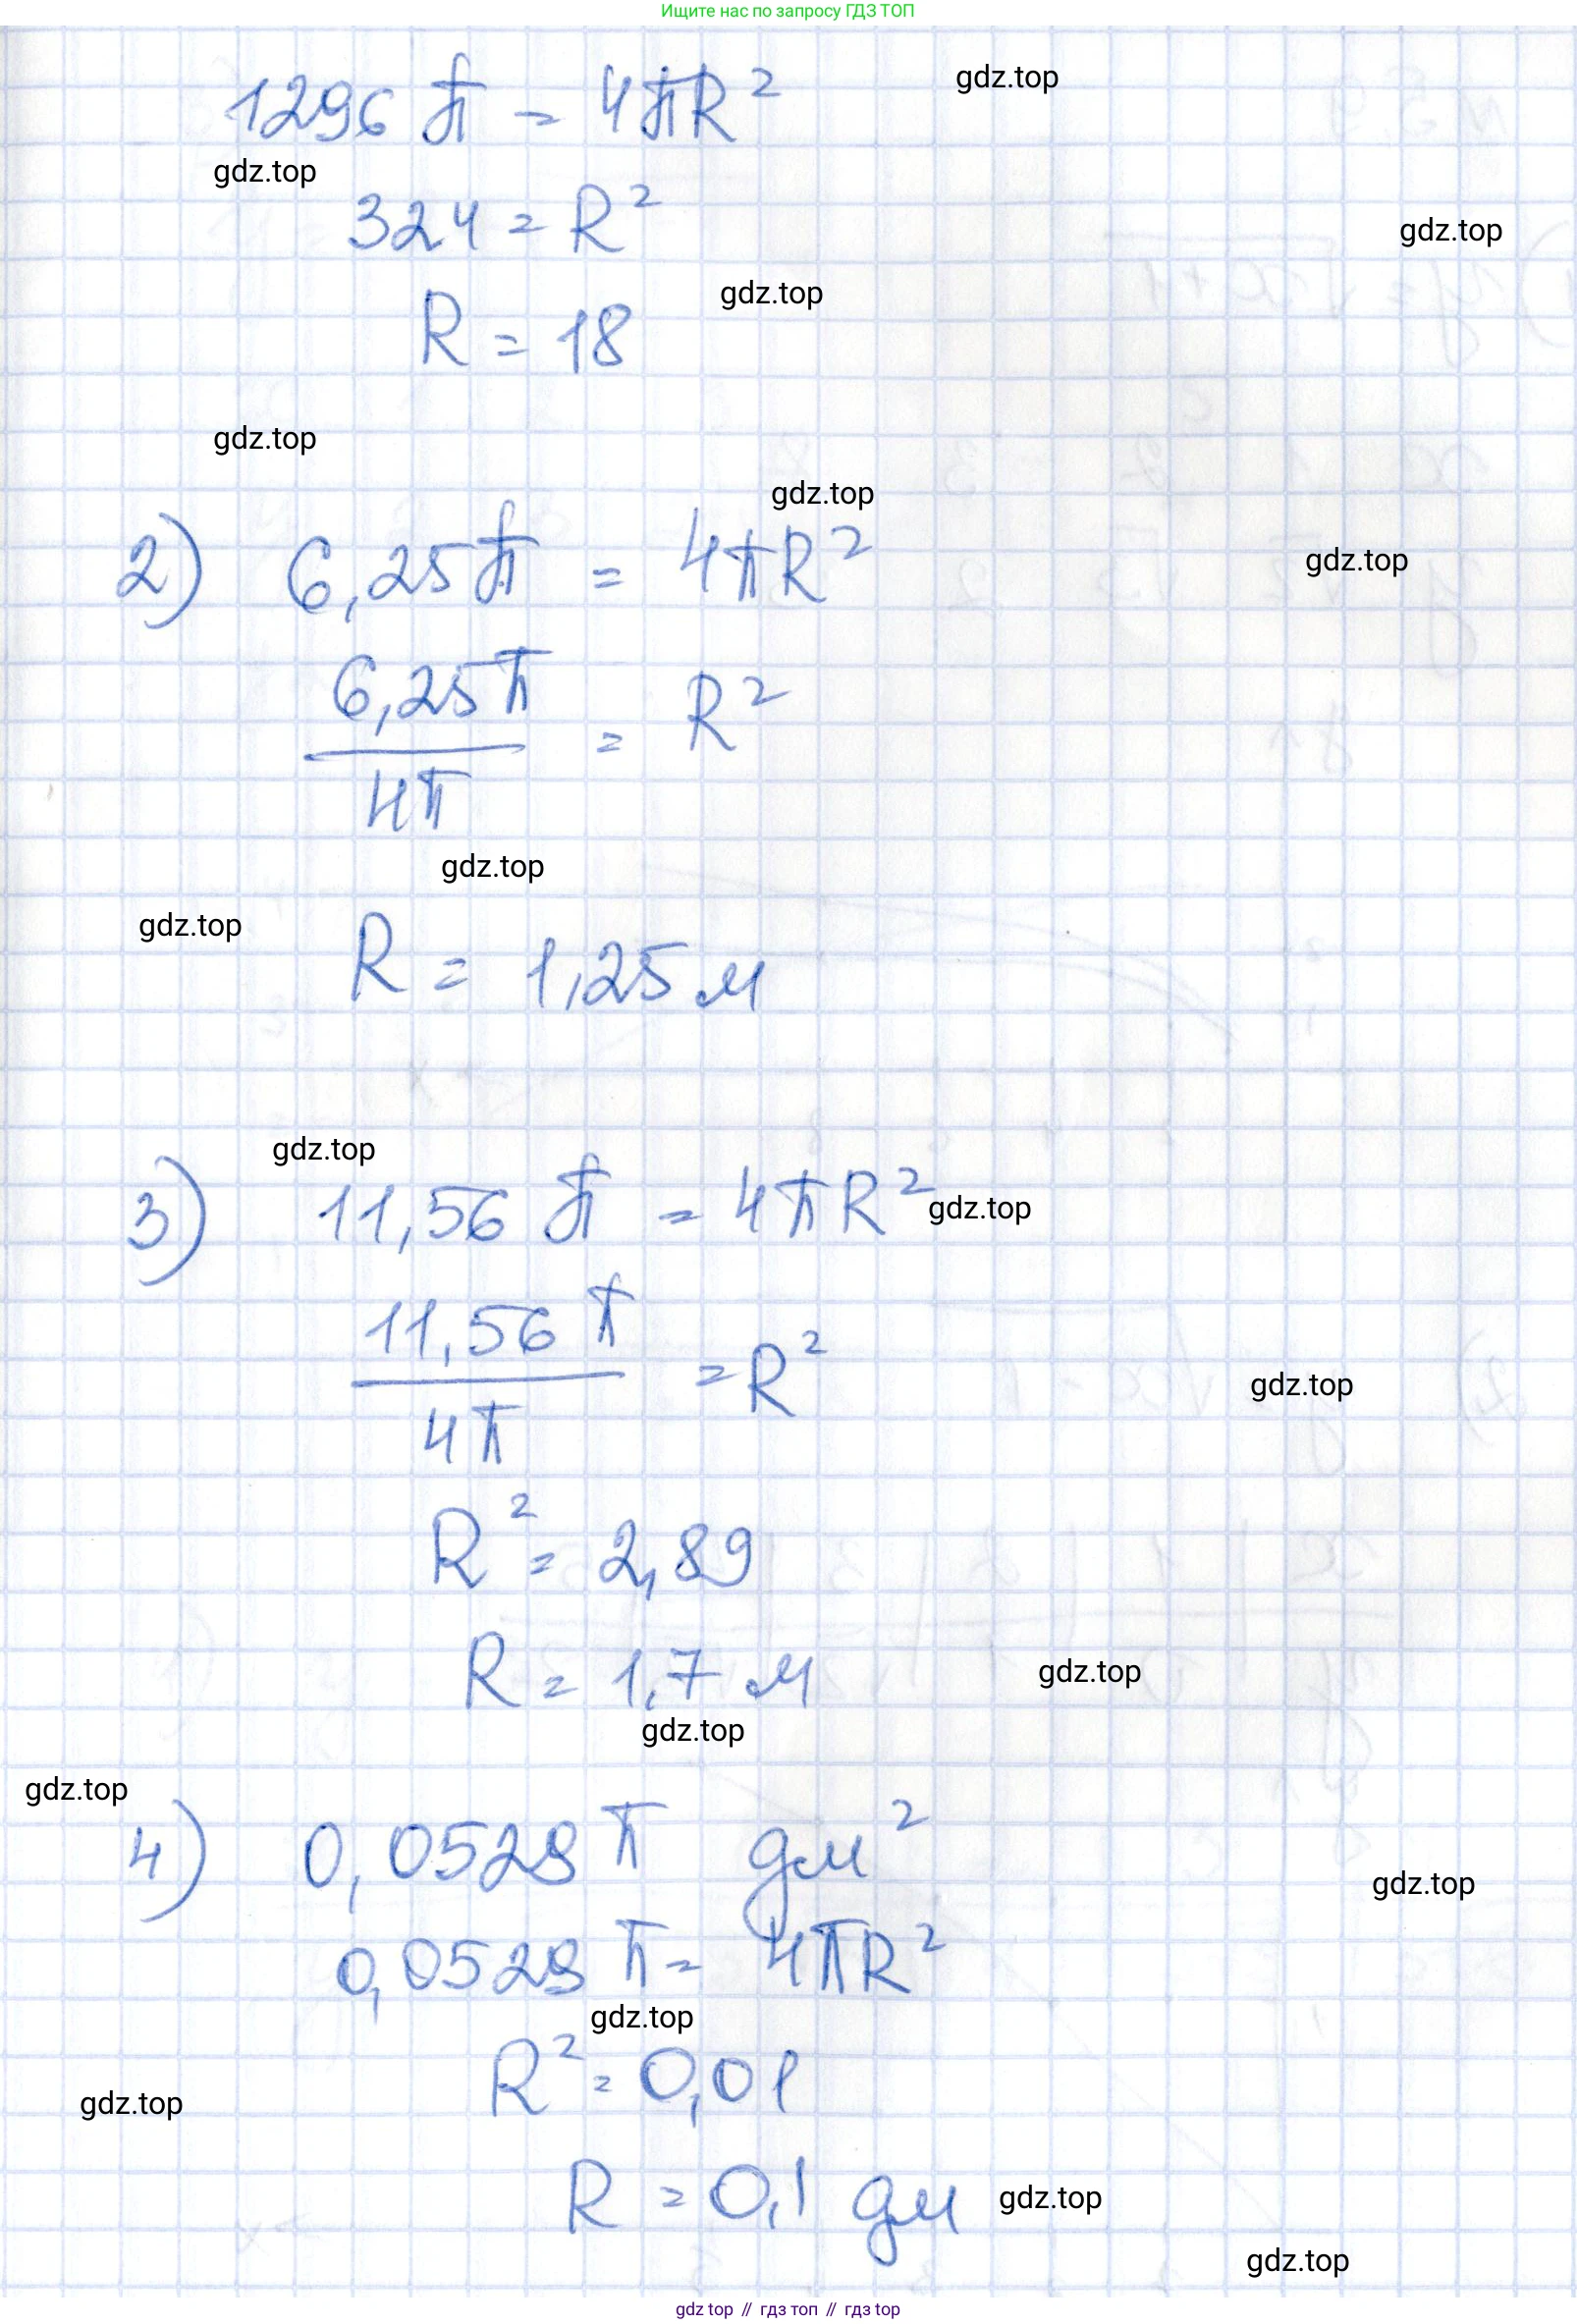 Ищите нас по запросу ГДЗ ТОП
1296 π = 4πR²
gdz.top
gdz.top
324 = R²
gdz.top
R = 18
gdz.top
gdz.top
gdz.top
2) 6,25π = 4πR²
gdz.top
6,25π / 4π = R²
gdz.top
gdz.top
R = 1,25 м
gdz.top
3) 11,56 π = 4πR²
gdz.top
11,56 π / 4π = R²
gdz.top
R² = 2,89
R = 1,7 м
gdz.top
gdz.top
gdz.top
4) 0,0529 π дм²
gdz.top
0,0529 π = 4πR²
gdz.top
R² = 0,01
gdz.top
R = 0,1 дм
gdz.top
gdz.top
gdz top // гдз топ // гдз top